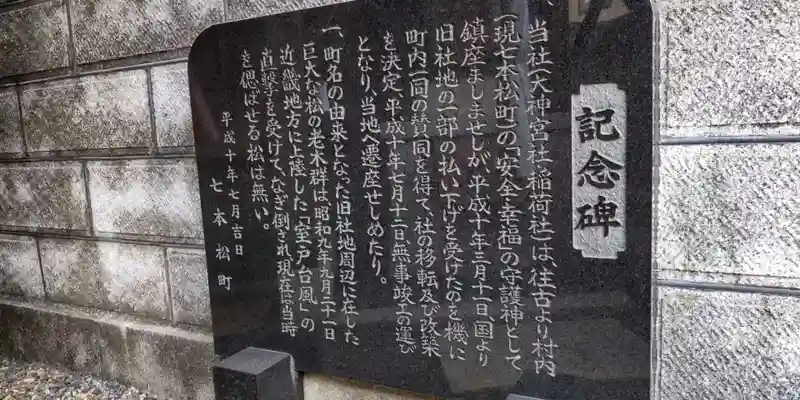 記念碑
一、当社(大神宮社、稲荷社)は、往古より村内
(現七本松町)の「安全・幸福」の守護神として
鎮座ましませしが、平成十年三月十一日、国より
旧社地の一部の払い下げを受けたのを機に
町内一同の賛同を得て、社の移転及び改築
を決定、平成十年七月十二日、無事竣工の運び
となり、当地へ遷座せしめたり。
一、町名の由来となった旧社地周辺に在した
巨大な松の老木群は、昭和九年九月二十一日
近畿地方に上陸した「室戸台風」の
直撃を受けて、なぎ倒され、現在は当時
を偲ばせる松は無い。
平成十年七月吉日
七本松町